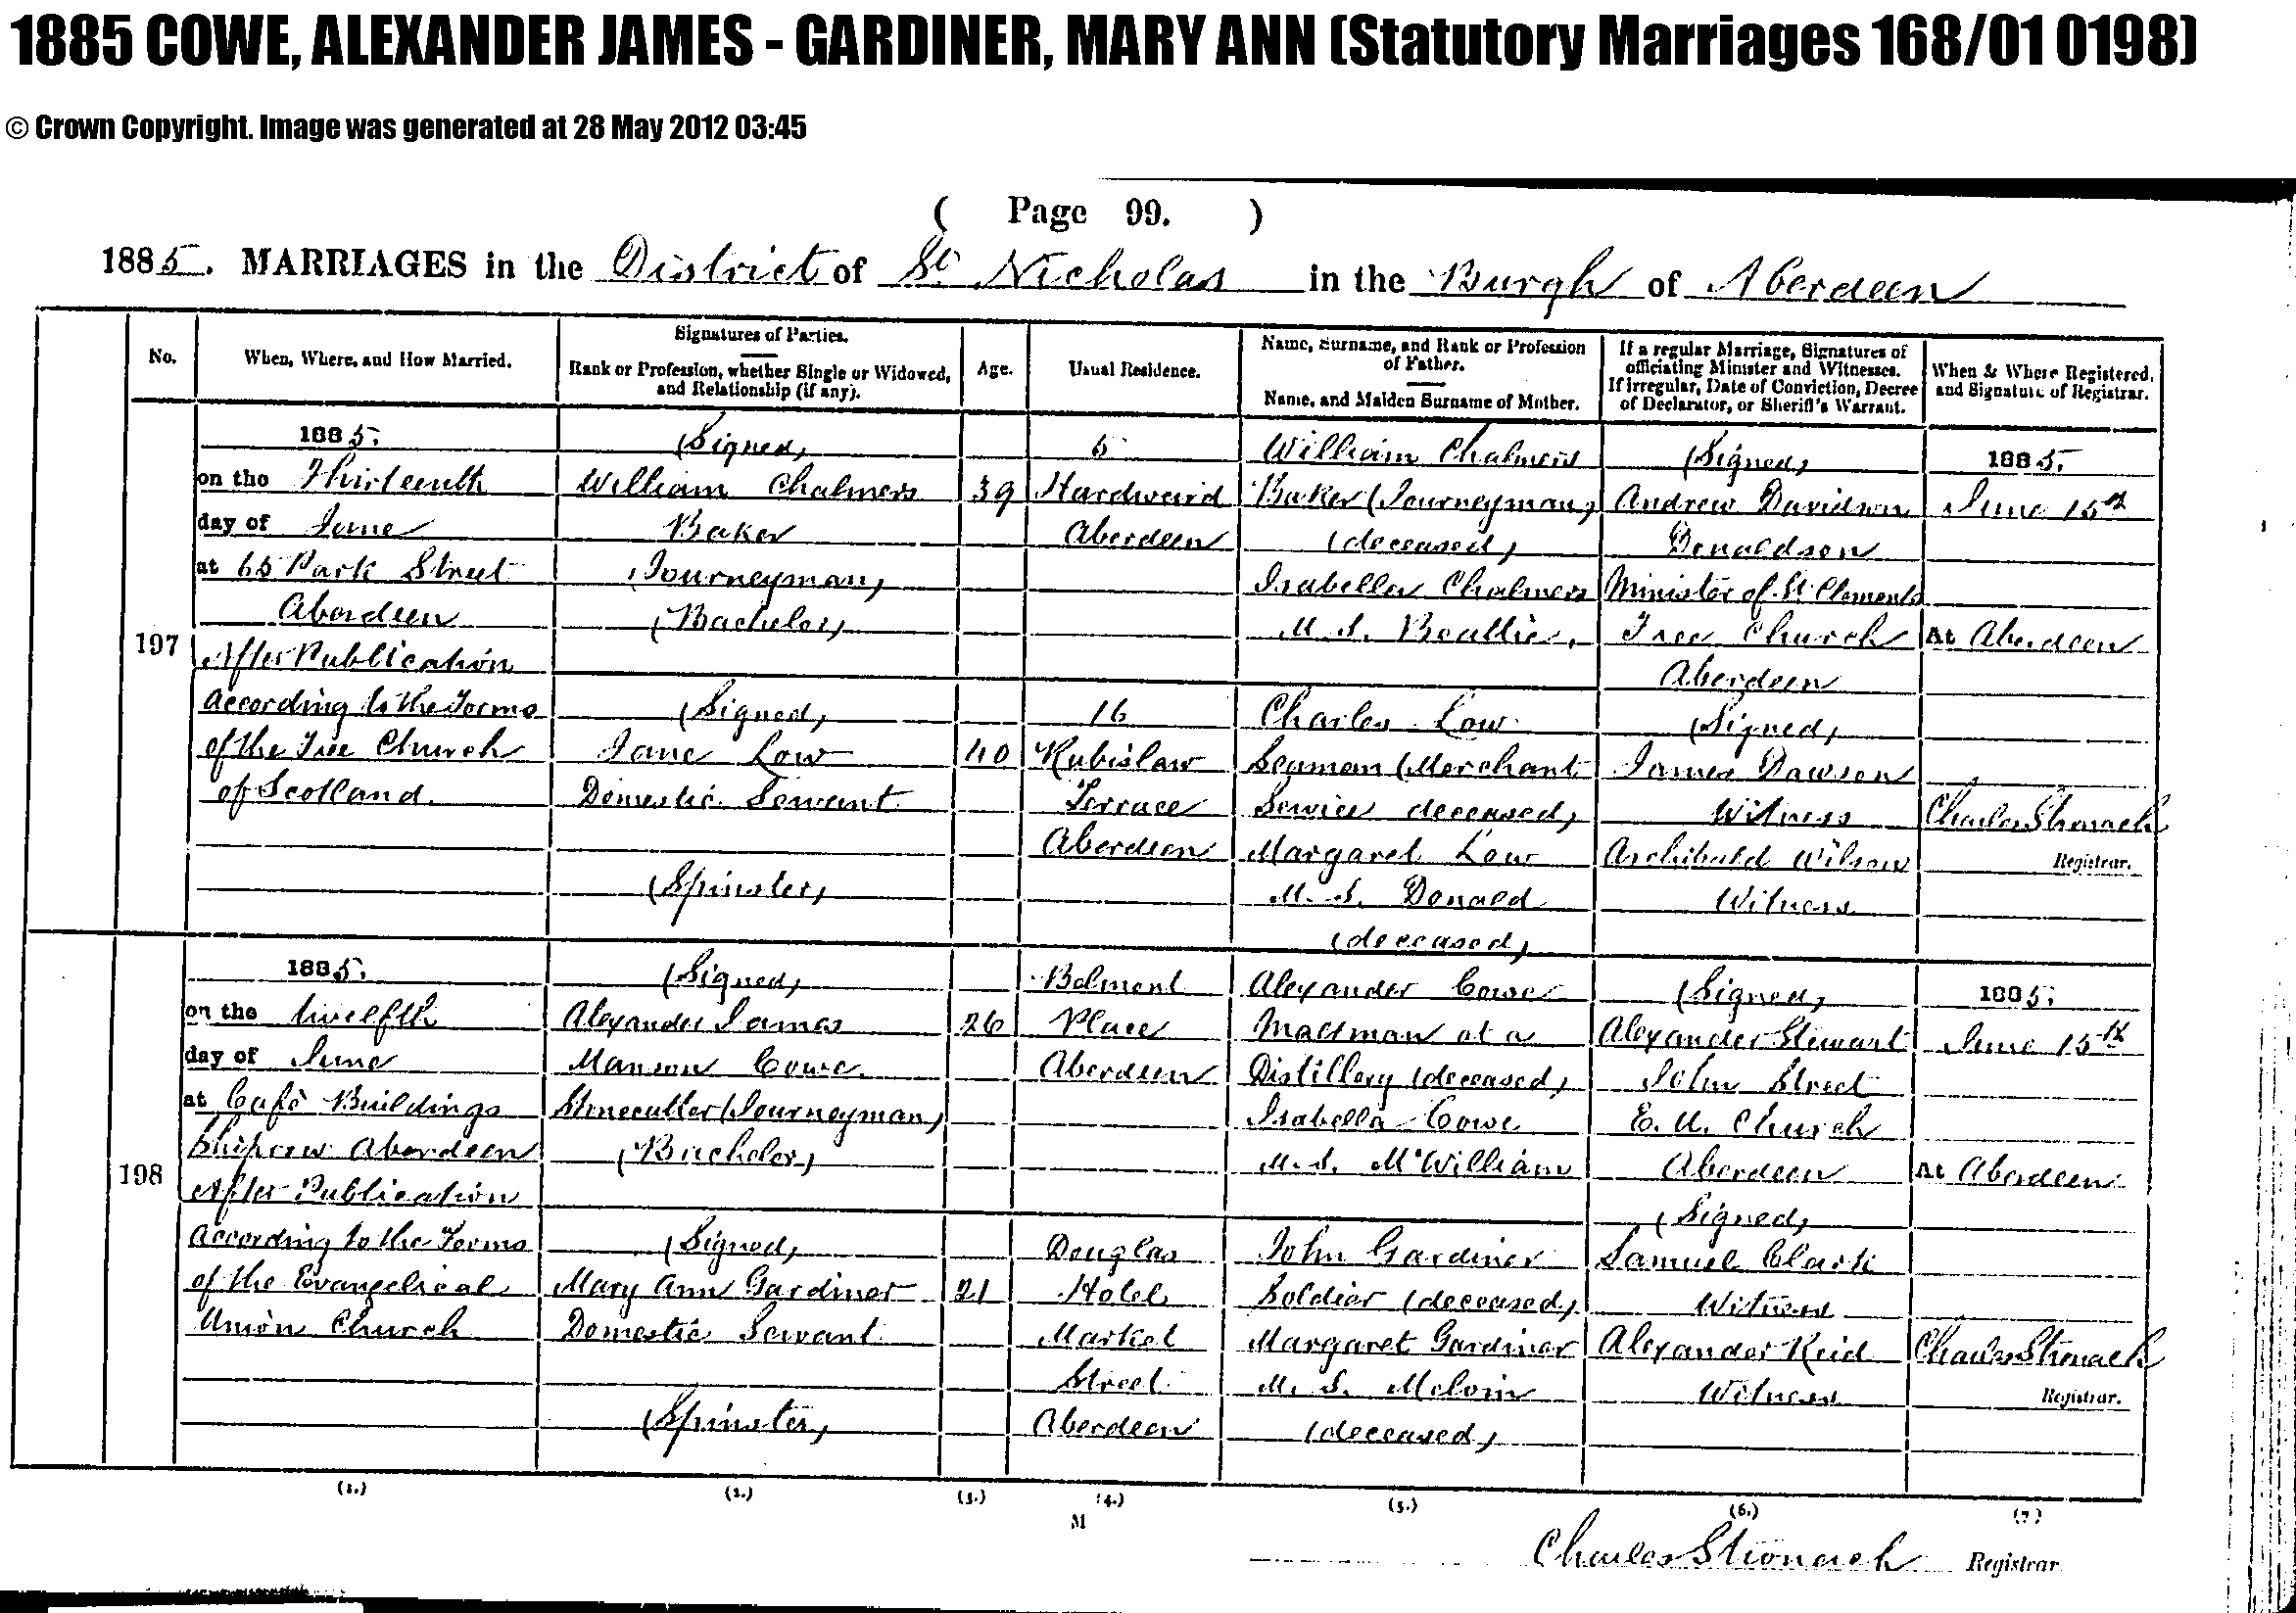 1885 COWE, ALEXANDER JAMES - GARDINER, MARY ANN (Statutory Marriages 168/01 0198)
© Crown Copyright. Image was generated at 28 May 2012 03:45
( Page 99. )
1885. MARRIAGES in the District of St. Nicholas in the Burgh of Aberdeen
No.
When, Where, and How Married.
Signatures of Parties.
Rank or Profession, whether Single or Widowed,
and Relationship (if any).
Age.
Usual Residence.
Name, Surname, and Rank or Profession
of Father.
Name, and Maiden Surname of Mother.
If a regular Marriage, Signatures of
officiating Minister and Witnesses.
If irregular, Date of Conviction, Decree
of Declarator, or Sheriff's Warrant.
When & Where Registered,
and Signature of Registrar.
197
1885.
on the Thirteenth
day of June
at 65 Park Street
Aberdeen
After Publication
According to the Forms
of the Free Church
of Scotland.
(Signed)
William Chalmers
Baker
(Journeyman)
(Bachelor)
39
5
Hardweird
Aberdeen
William Chalmers
Baker (Journeyman)
(deceased)
Isabella Chalmers
M. S. Beattie.
(Signed)
Jane Low
Domestic Servant
(Spinster)
40
16
Rubislaw
Terrace
Aberdeen
Charles Low
Seaman (Merchant
Service deceased)
Margaret Low
M. S. Donald
(deceased)
(Signed)
Andrew Davidson
Donaldson
Minister of St. Clements
Free Church
Aberdeen
(Signed)
James Dawson
Witness
Archibald Wilson
Witness
1885.
June 15th
At Aberdeen
Charles Stronach
Registrar.
198
1885.
on the twelfth
day of June
at Café Buildings
Shiprow Aberdeen
After Publication
According to the Forms
of the Evangelical
Union Church
(Signed)
Alexander James
Manson Cowe.
Stonecutter (Journeyman)
(Bachelor)
26
Belmont
Place
Aberdeen
Alexander Cowe
Maltman at a
Distillery (deceased)
Isabella Cowe
M. S. McWilliam
(Signed)
Mary Ann Gardiner
Domestic Servant
(Spinster)
21
Douglas
Hotel
Market
Street
Aberdeen
John Gardiner
Soldier (deceased)
Margaret Gardiner
M. S. Melvin
(deceased)
(Signed)
Alexander Stewart
John Street
E. U. Church
Aberdeen
(Signed)
Samuel Clark
Witness
Alexander Reid
Witness
1885.
June 15th
At Aberdeen
Charles Stronach
Registrar.
(1.) (2.) (3.) (4.) (5.) (6.) (7.)
M
Charles Stronach Registrar